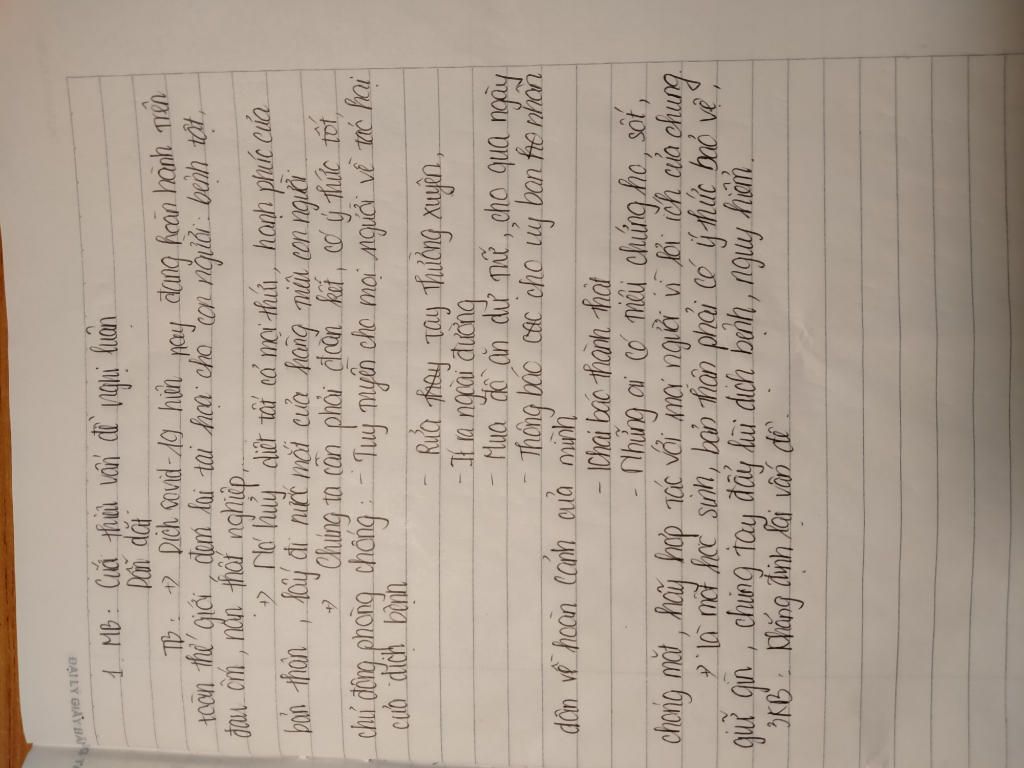 1. MB: Giới thiệu vấn đề nghị luận
Dẫn dắt
TB: +> Dịch covid-19 hiện nay đang hoàn hành trên
toàn thế giới, đem lại tai họa cho con người: bệnh tật,
đau ốm, nạn thất nghiệp,
+> Nó hủy diệt tất cả mọi thứ, hạnh phúc của
bản thân, lấy đi nước mắt của không nhiều con người
+> Chúng ta cần phải đoàn kết, có ý thức tốt,
chủ động phòng chống: - Tuy nyền cho mọi người về tác hại
của dịch bệnh
- Rửa tay thường xuyên,
- Ít ra ngoài đường
- Mua đồ ăn dự trữ, cho qua ngày
- Thông báo các cho uỷ ban nhân
dân về hoàn cảnh của mình
- Khai báo thành thật
- Những ai có triệu chứng ho, sốt,
chóng mặt, hãy hợp tác với mọi người vì lợi ích của chung
+> Là một học sinh, bản thân phải có ý thức bảo vệ,
giữ gìn, chung tay đẩy lùi dịch bệnh, nguy hiểm.
3KB: Khẳng định lại vấn đề.